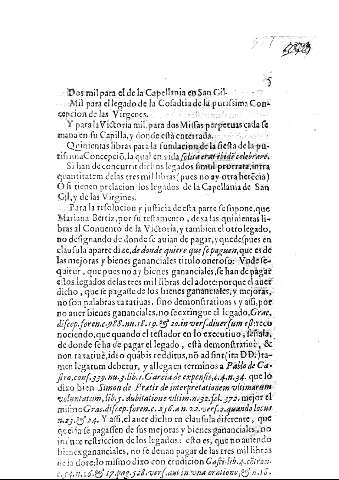 5
Dos mil para el de la Capellania en San Gil.
Mil para el legado de la Cofadria de la purissima Con-
cepcion de las Virgenes.
Y para la Victoria mil, para dos Missas perpetuas cada se
mana en su Capilla, y donde està enterrada.
Quinientas libras para la fundacion de la fiesta de la pu-
rissima Concepciõ, la qual en vida solita erat ibidi celebrare.
Si han de concurrir dichos legados simul prorrata, intra
quantitatem de las tres mil libras (pues no ay otra herēcia)
O si tienen prelacion los legados de la Capellania de San
Gil, y de las Virgines.
Para la resolucion y justicia de esta parte se supone, que
Mariana Bertiz, por su testamento, dexa las quinientas li-
bras al Conuento de la Victoria, y tambien el otro legado,
no designando de donde se auian de pagar, y que despues en
clausula aparte dize, de donde quiere que se paguen, que es de
las mejoras y bienes gananciales titulo oneroso: Vnde se-
quitur, que pues no ay bienes gananciales, se han de pagar
estos legados de las tres mil libras del adote: porque el auer
dicho, que se pagasse de los bienes gananciales, y mejoras,
no son palabras taxatiuas, sino demonstratiuas y assi, por
no auer bienes gananciales, no se extingue el legado, Grac.
discep. foren. c. 988. nu. 18. 19. & 20. in vers. diuersum est: reco
nociendo, que quando el testador en lo executiuo, señala,
de donde se ha de pagar el legado, està demonstratiuè, &
non taxatiuè, id. o quàbis redditus, nõ ad sint (ita DD:) ta-
men legatum debetur, y allega en terminos a Pablo de Ca-
stro. conf. 339. nu. 3. lib. 1. Garcia de expensis. 4. 4. n. 34. que lo
dixo bien Simon de Pretis de interpretationem vltimarum
voluntatum, lib. 5. dubitatione vltim. n. 32. fol. 372. mejor el
mismo Gras. discep. foren. c. 256. an n. 22. vers. 2. quando locus
n. 23. & 24. Y assi, el auer dicho en clausula diferente, que
queria se pagassen de sus mejoras y bienes gananciales, no
induxe restriccion de los legados: esto es, que no auiendo
bienes gananciales, no se deuan pagar de las tres mil libras
de la dote: lo mismo dixo con erudicion